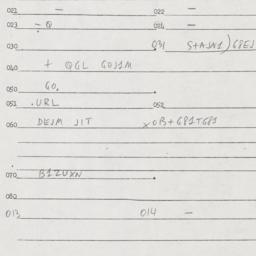 021 – 022 –
023 – Q 024 –
030 031 S+AJA1)G8EJ
040 + QGL GOJ1M
050 GO.
051 .URL 052
060 DEJM JIT xOB+G81TG81
070 B1ZUXN
080
013 014 –